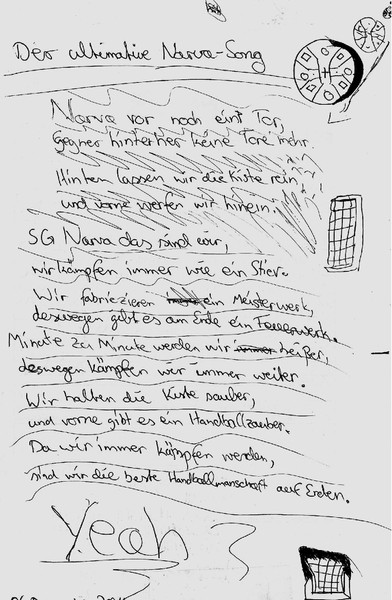 Der ultimative Narva-Song
Narva vor noch eint Tor,
Gegner hinterher keine Tore mehr.
Hinten lassen wir die Kiste rein,
und vorne werfen wir hinein.
SG Narva das sind wir,
wir kämpfen immer wie ein Stier.
Wir fabriezieren ein Meisterwerk,
deswegen gibt es am Ende ein Feuerwerk.
Minute zu Minute werden wir immer heißer,
deswegen kämpfen wir immer weiter.
Wir halten die Kiste sauber,
und vorne gibt es ein Handballzauber.
Da wir immer kämpfen werden,
sind wir die beste Handballmanschaft auf Erden.
Yeah